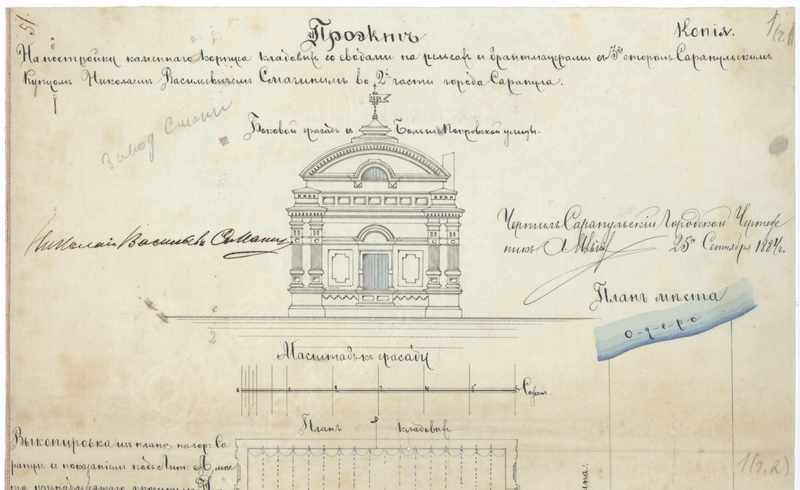 Проэктъ
Копія.
На постройку каменнаго корпуса кладовыхъ со сводами на рельсахъ и брантмауерами съ 3хъ сторонъ Сарапульскимъ
Купцомъ Николаемъ Васильевичемъ Смагинымъ во 2й части города Сарапула.
Боковой фасадъ съ Больше-Покровской улицы.
Завод Смаги
Николай Васильевъ Смагинъ
Чертилъ Сарапульскій Городской Чертеж
никъ
25го Сентября 1884 г.
Планъ мѣста
озеро
Масштабъ фасаду
Сажен.
Планъ кладовыхъ
Выкопировка изъ плана на гор. Са
рапулъ съ показаніемъ подъ Лит. А мѣс
1(ч.2)